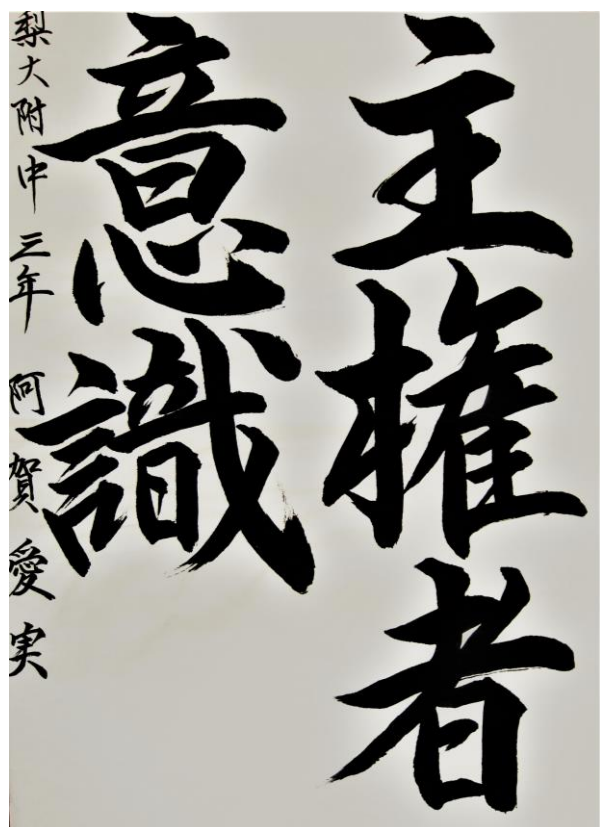 主権者
意識
梨大附中三年 阿賀愛実